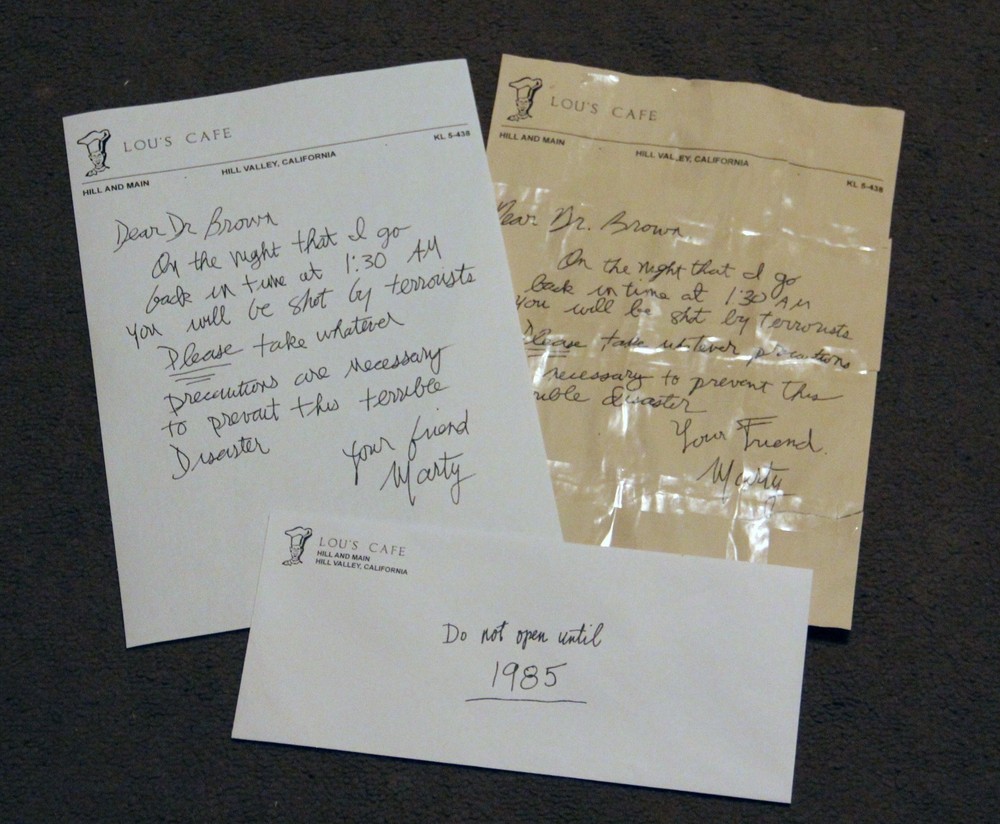 LOU'S CAFE
KL 5-438
HILL AND MAIN
HILL VALLEY, CALIFORNIA
Dear Dr Brown
On the night that I go
back in time at 1:30 AM
you will be shot by terrorists
Please take whatever
precautions are necessary
to prevent this terrible
Disaster
Your friend
Marty
LOU'S CAFE
HILL AND MAIN
HILL VALLEY, CALIFORNIA
KL 5-438
Dear Dr. Brown
On the night that I go
back in time at 1:30 AM
you will be shot by terrorists
Please take whatever precautions
necessary to prevent this
disaster
Your Friend.
Marty
LOU'S CAFE
HILL AND MAIN
HILL VALLEY, CALIFORNIA
Do not open until
1985